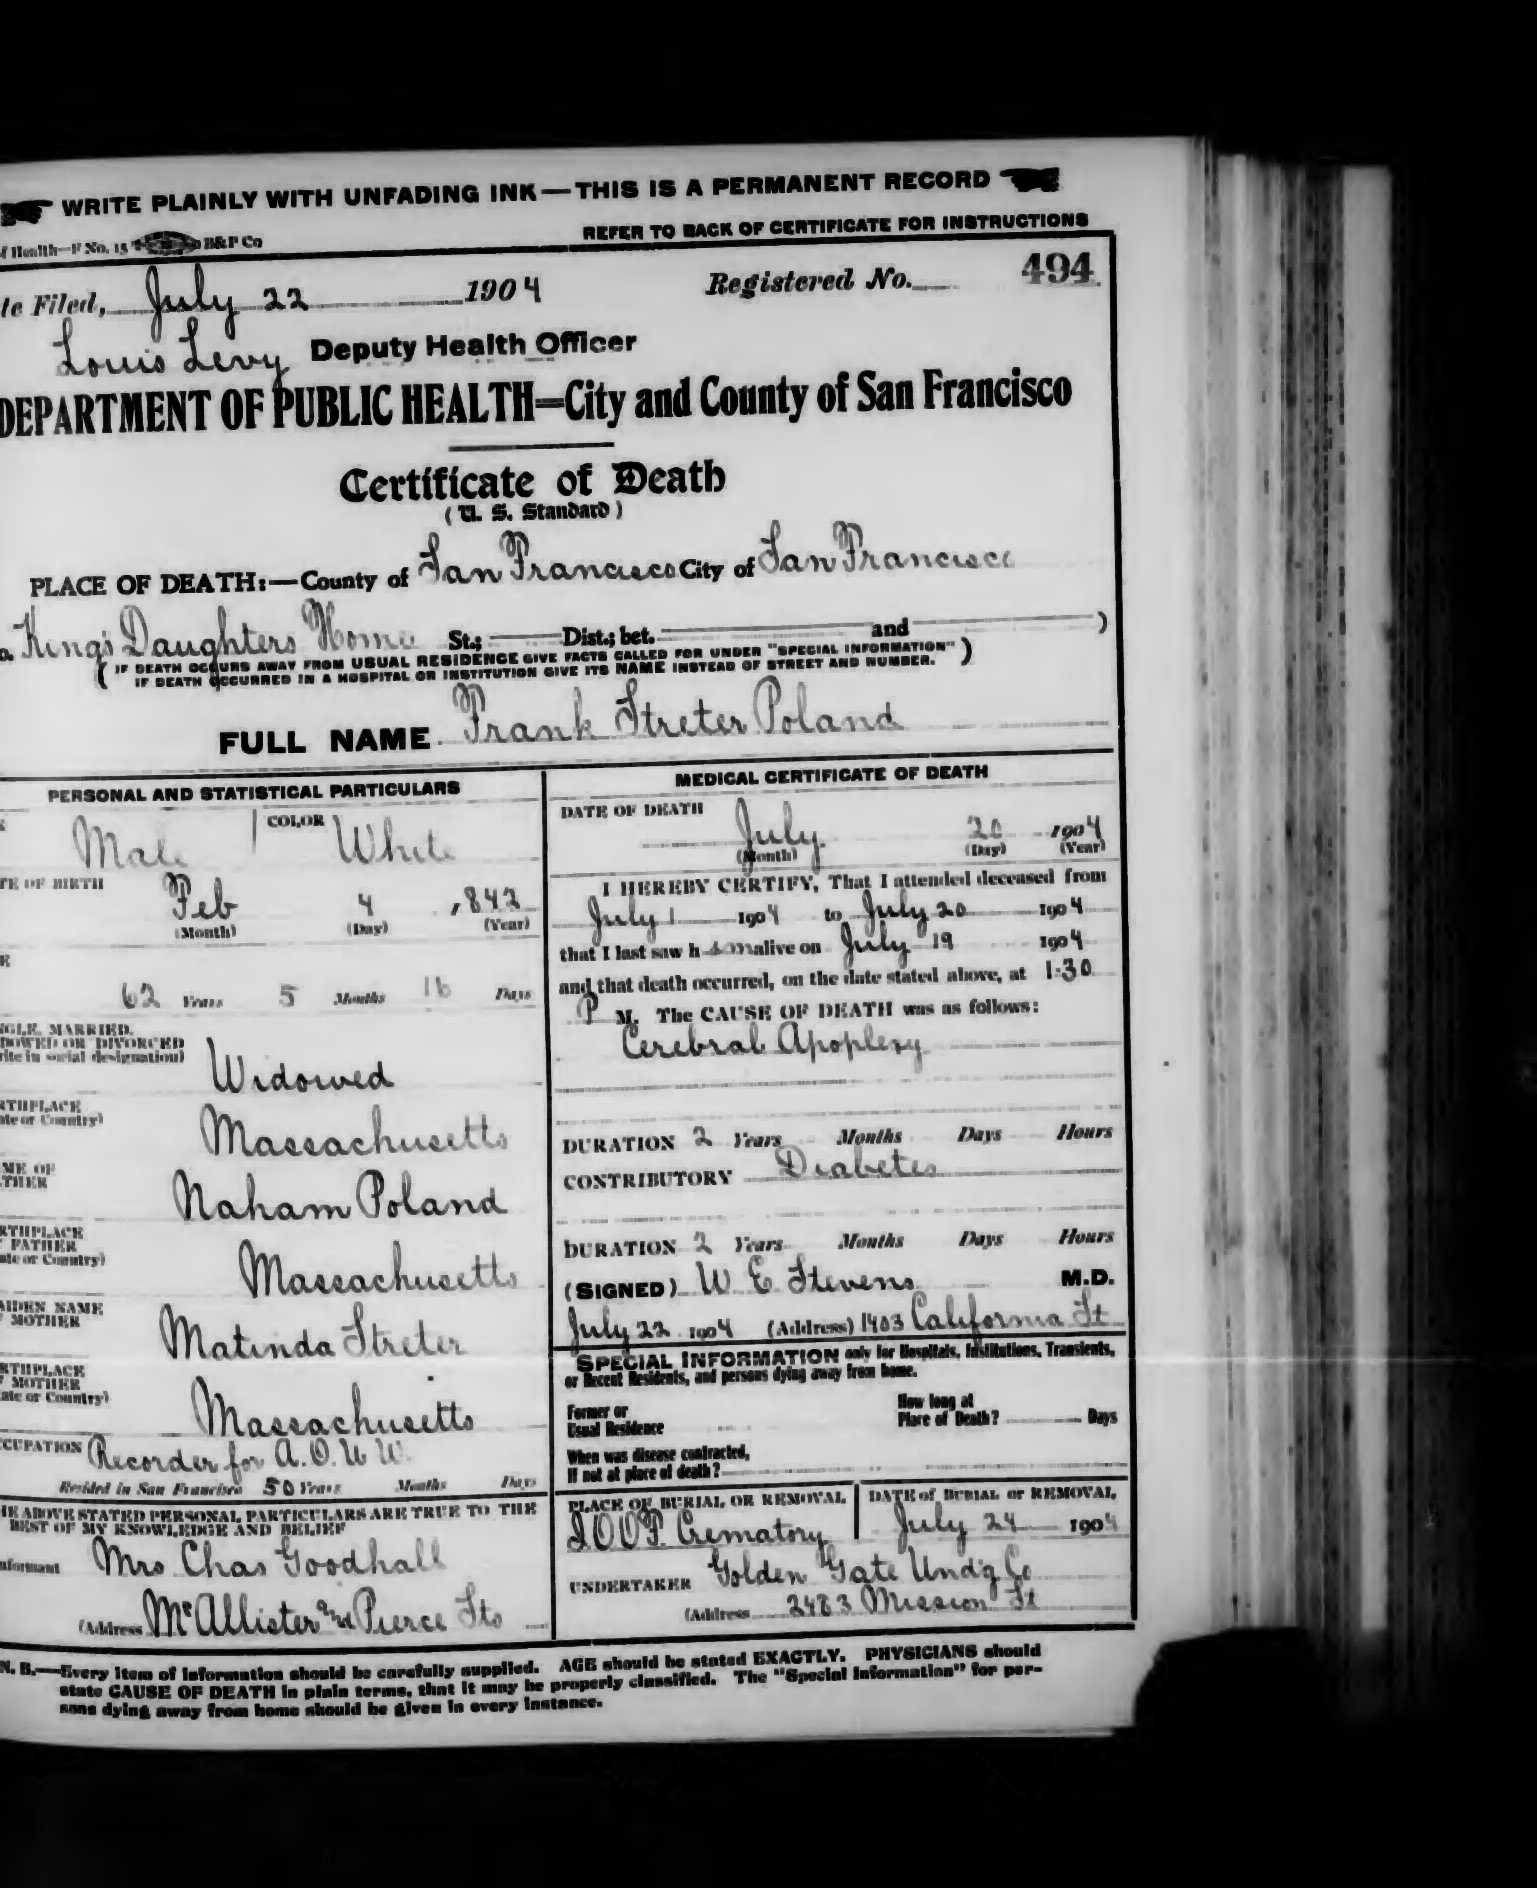 WRITE PLAINLY WITH UNFADING INK—THIS IS A PERMANENT RECORD
f Health—F No. 15 B&P Co
REFER TO BACK OF CERTIFICATE FOR INSTRUCTIONS
te Filed, July 22 1904 Registered No. 494
Louis Levy Deputy Health Officer
DEPARTMENT OF PUBLIC HEALTH=City and County of San Francisco
Certificate of Death
(U. S. Standard)
PLACE OF DEATH:—County of San Francisco City of San Francisco
o. King's Daughters Home St.; Dist.; bet. and )
( IF DEATH OCCURS AWAY FROM USUAL RESIDENCE GIVE FACTS CALLED FOR UNDER "SPECIAL INFORMATION" )
IF DEATH OCCURRED IN A HOSPITAL OR INSTITUTION GIVE ITS NAME INSTEAD OF STREET AND NUMBER.
FULL NAME Frank Streter Poland
PERSONAL AND STATISTICAL PARTICULARS
COLOR
Male White
TE OF BIRTH
Feb 4 , 842
(Month) (Day) (Year)
E
62 Years 5 Months 16 Days
NGLE, MARRIED,
DOWED OR DIVORCED
rite in social designation)
Widowed
RTHPLACE
ate or Country)
Massachusetts
ME OF
THER
Naham Poland
RTHPLACE
F FATHER
ate or Country)
Massachusetts
AIDEN NAME
F MOTHER
Matinda Streter
RTHPLACE
F MOTHER
ate or Country)
Massachusetts
CCUPATION Recorder for A.O.U.W.
Resided in San Francisco 50 Years Months Days
HE ABOVE STATED PERSONAL PARTICULARS ARE TRUE TO THE
BEST OF MY KNOWLEDGE AND BELIEF
nformant Mrs Chas Goodhall
(Address McAllister and Pierce Sts
MEDICAL CERTIFICATE OF DEATH
DATE OF DEATH
July 20 1904
(Month) (Day) (Year)
I HEREBY CERTIFY, That I attended deceased from
July 1 1904 to July 20 1904
that I last saw him alive on July 19 1904
and that death occurred, on the date stated above, at 1:30
P M. The CAUSE OF DEATH was as follows:
Cerebral Apoplexy
DURATION 2 Years Months Days Hours
CONTRIBUTORY Diabetes
DURATION 2 Years Months Days Hours
(SIGNED) W E Stevens M.D.
July 22 1904 (Address) 1403 California St
SPECIAL INFORMATION only for Hospitals, Institutions, Transients,
or Recent Residents, and persons dying away from home.
Former or
Usual Residence
How long at
Place of Death? Days
When was disease contracted,
If not at place of death?
PLACE OF BURIAL OR REMOVAL
IOOF. Crematory
DATE of BURIAL or REMOVAL
July 24 1904
UNDERTAKER Golden Gate Und'g Co
(Address 2483 Mission St
N. B.—Every item of information should be carefully supplied. AGE should be stated EXACTLY. PHYSICIANS should
state CAUSE OF DEATH in plain terms, that it may be properly classified. The "Special Information" for per-
sons dying away from home should be given in every instance.